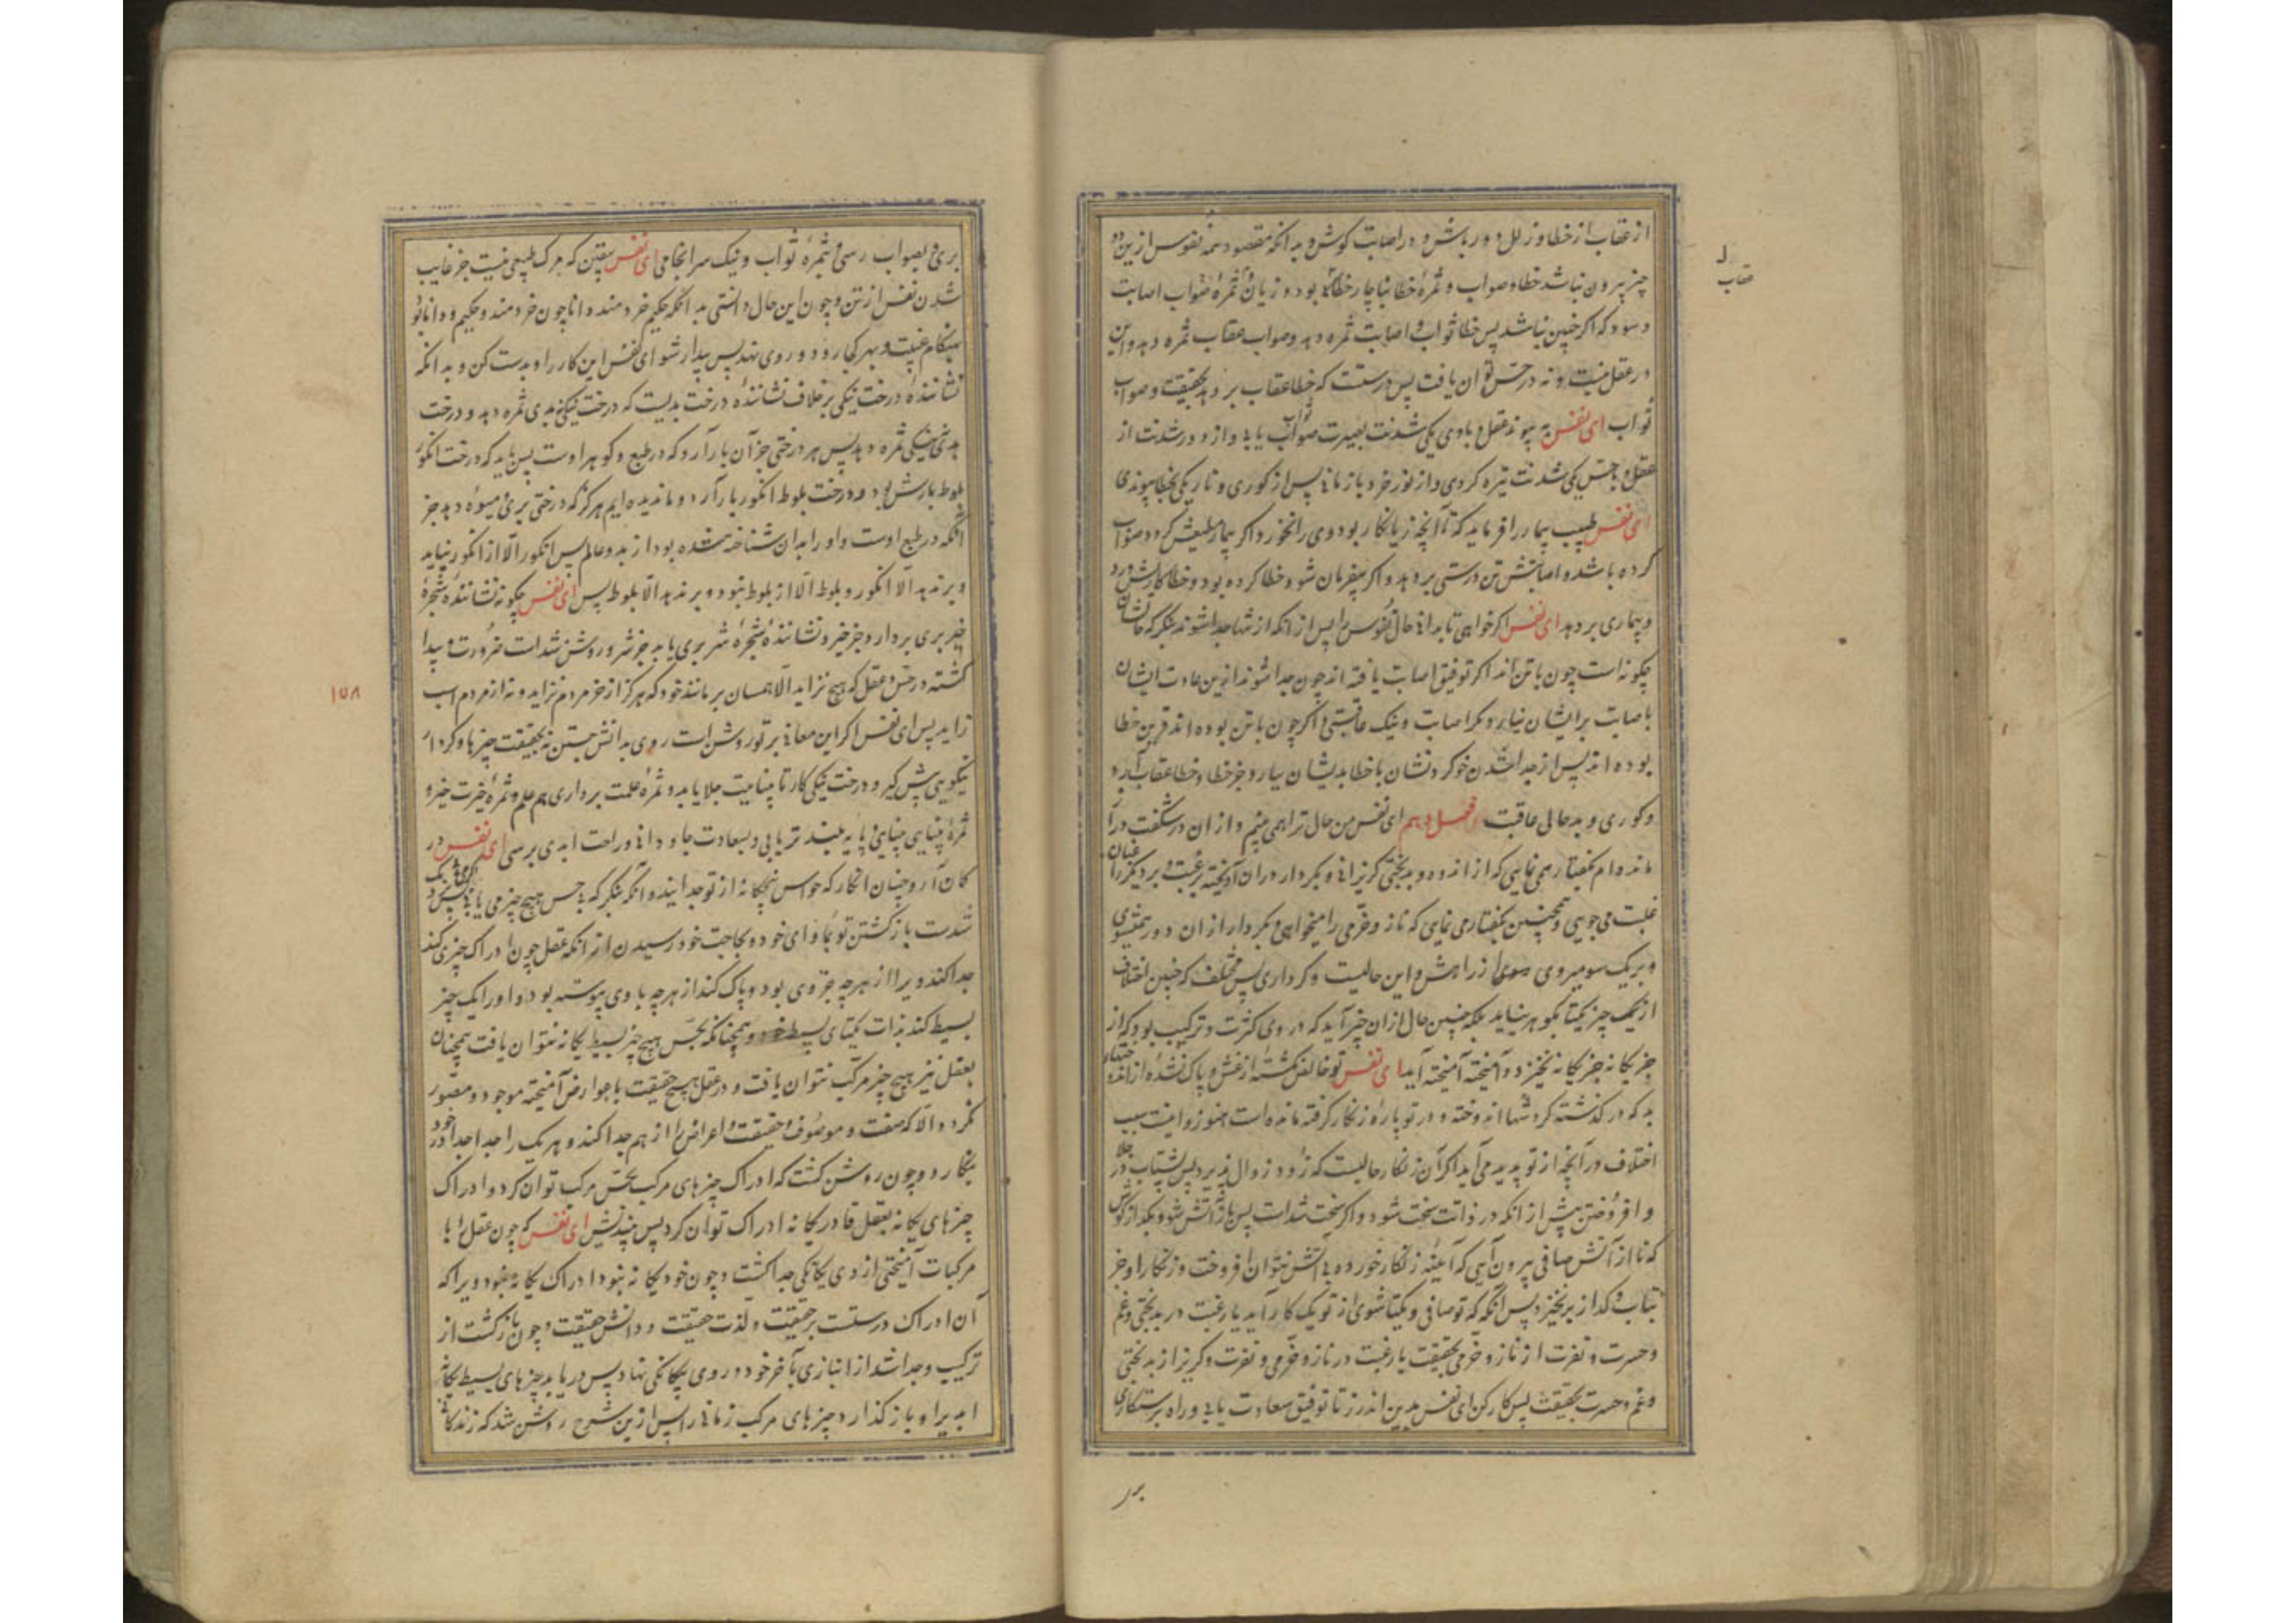 از عقاب از خطا و زلل دور باش و در اصابت کوش و بدانکه مقصود همه نفوس ازین دو
چیز بیرون نباشد خطا و صواب و ثمرهٔ خطا بناچار خطا بود و زیان و ثمرهٔ صواب اصابت
و سود که اکر چنین نباشد پس خطا ثواب و اصابت ثمره دهد و صواب عقاب ثمره دهد و این
در عقل نیست و نه در حس توان یافت پس درستست که خطا عقاب بر دهد بحقیقت و صواب
ثواب ای نفس به پیوند عقل و با وی یکی شدنت بصیرت صواب یابی و از دور شدنت از
عقل و با حس یکی شدنت تیره کردی و از نور خرد باز مانی پس از کوری و تاریکی بخطا پیوندی
ای نفس طبیب بیمار را فرماید که تا آنچه زیانکار بود وی را نخورد اکر بیمار طبعش کرد و صواب
کرده باشد و اصابتش تن درستی بر دهد و اکر بیفرمان شود خطا کرده بود و خطا کاریش درد
و بیماری بر دهد ای نفس اکر خواهی تا بدانی حال نفوس را پس از انکه از تنها جدا شوند بنکر که حالشان
چکونه است چون با تن اند اکر توفیق اصابت یافته اند چون جدا شوند ازین عادت ایشان
باصابت بر ایشان نیارد مکر اصابت و نیک عاقبتی و اکر چون با تن بوده اند قرین خطا
بوده اند پس از جدا شدن خو کردنشان با خطا بدیشان نیارد جز خطا و خطا عقاب آرد
و کوری و بد حالی عاقبت فصل دهم ای نفس من حال ترا همی بینم و از ان در شکفت درا
مانده ام بکفتار همی نمایی که از اندوه و بدبختی کریزانی و بکردار دران آویخته برغبت و بر دیکران
غلبت می جویی و همچنین بکفتار می نمایی که ناز و خرمی را میخواهی و بکردار از ان دور همیشوی
و بریک سو میروی سوی از راهش و این حالیست و کرداری بس مختلف که چنین اختلاف
از یک چیز یکتا بکوهر نیاید بلکه چنین حال از ان خیز آید که در وی کثرت و ترکیب بود که از
چیز یکانه جز یکانه نخیزد و آمیخته آمیخته آید ای نفس تو خالص نکشتهٔ از غش و پاک نشدهٔ از اندوه
بد که در کذشته کردشها اندوخته و در تو پارهٔ زنکار کرفته مانده است هنوز و اینست سبب
اختلاف در آنچه از تو پدید می آید اکر آن زنکار حالیست که زود زوال پذیرد پس بشتاب در جلا
و افروختن پیش از انکه در ذاتت سخت شود و اکر سخت شدست پس باز آتش شو و بکداز
که تا از آتش صافی بیرون آیی که آیینهٔ زنکار خورده بی آتش نتوان افروخت و زنکار او جز
بتاب و کداز بر نخیزد پس انکه که تو صافی و یکتا شوی از تو یک کار آید یا رغبت در بدبختی و غم
و حسرت و نفرت از ناز و خرمی بحقیقت یا رغبت در ناز و خرمی و نفرت و کریز از بدبختی
و غم و حسرت بحقیقت پس کار کن ای نفس بدین اندرز تا توفیق سعادت یابی و راه رستکاری
بر
عقاب
بری و بصواب رسی و ثمرهٔ ثواب و نیک سرانجامی ای نفس بیقین که مرک طبیعی نیست جز غایب
شدن نفس از تن و چون این حال دانستی بدانکه حکیم خردمند دانا چون خردمند و حکیم و دانا بود
هنکام غیبت و بهر کجا رود و روی نهد پس بیدار شو ای نفس این کار را و بدست کن و بدانکه
نشانندهٔ درخت نیکی برخلاف نشانندهٔ درخت بدیست که درخت نیکی نه بدی ثمره دهد و درخت
بدی نیکی ثمره دهد پس هر درختی جز آن بار آرد که در طبع و کوهر اوست پس باید که درخت انکور
بلوط بارش بود و درخت بلوط انکور بار آرد و ما ندیده ایم هرکز که درختی بری میوه دهد جز
آنکه در طبع اوست و او را بدان شناخته شده بود از بدو عالم پس انکور الا از انکور نیاید
و بر ندهد الا انکور و بلوط الا از بلوط نبود و بر ندهد الا بلوط پس ای نفس چکونه نشانندهٔ شجرهٔ
خیر بری بردارد جز خیر و نشانندهٔ شجرهٔ شر بری یابد جز شر و روشن شدست ضرورت و پیدا
کشته در حس و عقل که هیچ نزاید الا همسان بر مانند خود که هرکز از خر مردم نزاید و نه از مردم اسب
زاید پس ای نفس اکر این معانی بر تو روشن است روی بدانش جستن نه بحقیقت چیزها و کردار
نیکویی پیش کیر و درخت نیکی کار تا بیناییت جلا یابد و ثمرهٔ علمت برداری هم علم و ثمرهٔ خیرت خیر و
ثمرهٔ بینایی بینایی و پایهٔ بلند تر یابی و بسعادت جاودانی و راحت ابدی برسی ای نفس در
کمان آر و چنان انکار که حواس پنجکانه از تو جدا اند و آنکه بنکر که بی حس هیچ چیز می یابی
شدست باز کشتن تو بمأوای خود و بحاجت خود رسیدن از انکه عقل چون ادراک چیزی کند
جدا کند ویرا از هرچه جز وی بود و پاک کند از هرچه با وی پیوسته بود و او را یک چیز
بسیط کند بذات یکتای بسیط خود و همچنانکه بحس هیچ چیز بسیط یکانه نتوان یافت همچنان
بعقل نیز هیچ چیز مرکب نتوان یافت و در عقل هیچ حقیقت با عوارض آمیخته موجود و مصور
نکردد الا که صفت و موصوف و حقیقت و اعراض را از هم جدا کند و هریک را جدا جدا در خود
بنکارد و چون روشن کشت که ادراک چیزهای مرکب بحس مرکب توان کرد و ادراک
چیزهای یکانه بعقل قادر یکانه ادراک توان کرد پس بیندیش ای نفس که چون عقل را با
مرکبات آمیختی از وی یکانکی جدا کشت و چون خود یکانه نبود ادراک یکانه نبود ویرا که
آن ادراک درستست بر حقیقت و لذت حقیقت و دانش حقیقت و چون بازکشت از
ترکیب و جدا شد از انبازی بآخر خود در وی یکانکی نهاد پس دریابد چیزهای بسیط یکانه
ابدی را و باز کذارد چیزهای مرکب زمانی را پس ازین شرح روشن شد که زندکانی
۱۵۸